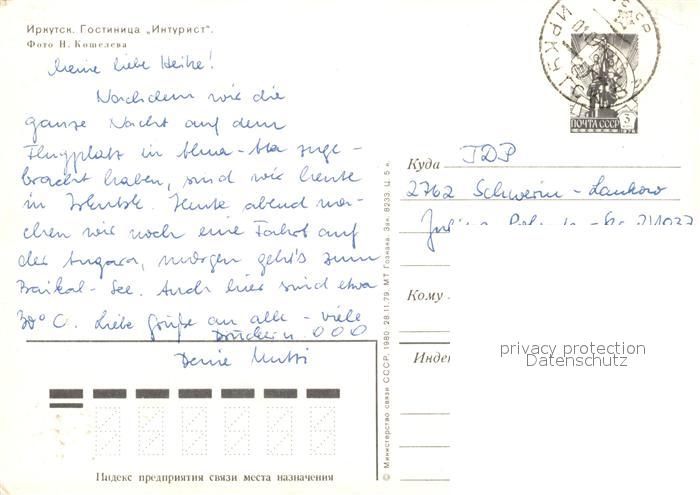 Иркутск. Гостиница „Интурист“.
Фото Н. Кошелева
Meine liebe Heike!
Nachdem wir die
ganze Nacht auf dem
Flugplatz in Alma-Ata zuge-
bracht haben, sind wir heute
in Irkutsk. Heute abend ma-
chen wir noch eine Fahrt auf
der Angara, morgen geht's zum
Baikal-See. Auch hier sind etwa
30°C. Liebe Grüße an alle - viele
Drückern OOO
Deine Mutti
Индекс предприятия связи места назначения
© Министерство связи СССР. 1980. 28.11.79. МТ Гознака. Зак. 8233. Ц. 5 к.
ИРКУТСК
ПОЧТА СССР 3
1976
Куда JDP
2762 Schwerin-Lankow
Кому
Индек
privacy protection
Datenschutz